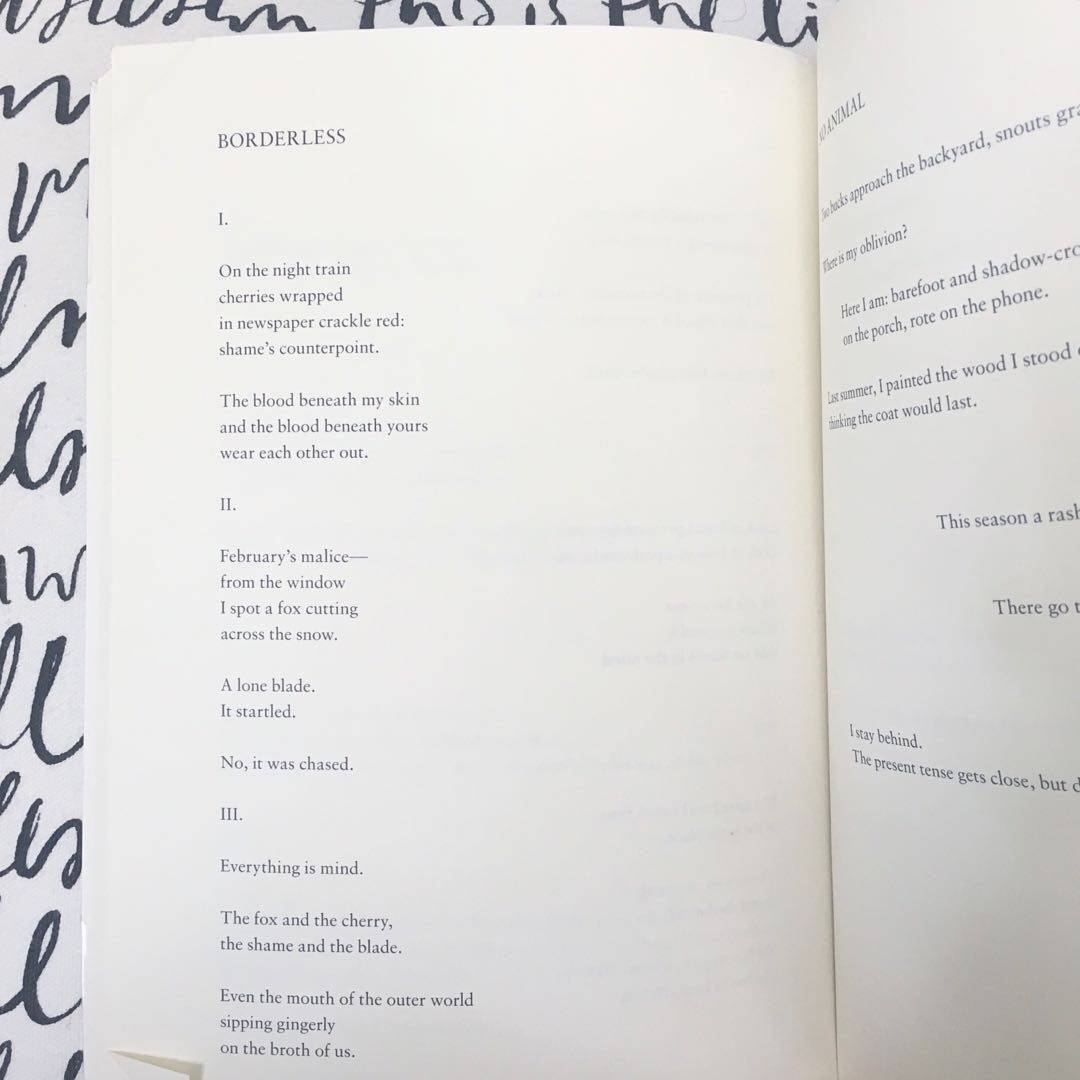 this is the
BORDERLESS
I.
On the night train
cherries wrapped
in newspaper crackle red:
shame's counterpoint.
The blood beneath my skin
and the blood beneath yours
wear each other out.
II.
February's malice—
from the window
I spot a fox cutting
across the snow.
A lone blade.
It startled.
No, it was chased.
III.
Everything is mind.
The fox and the cherry,
the shame and the blade.
Even the mouth of the outer world
sipping gingerly
on the broth of us.
ANIMAL
Two bucks approach the backyard, snouts
Where is my oblivion?
Here I am: barefoot and
on the porch, rote on the phone.
Last summer, I painted the wood I stood
thinking the coat would last.
This season a
There go
I stay behind.
The present tense gets close, but